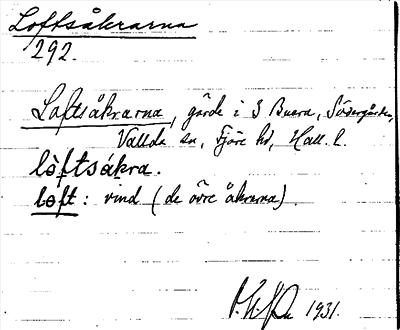 Loftsåkrarna
292.
Loftsåkrarna, gärde i S Buera, Södergården,
Vallda sn, Fjäre hd, Hall. l.
lòftsákra.
lòft: vind (de övre åkrarna).
1931.